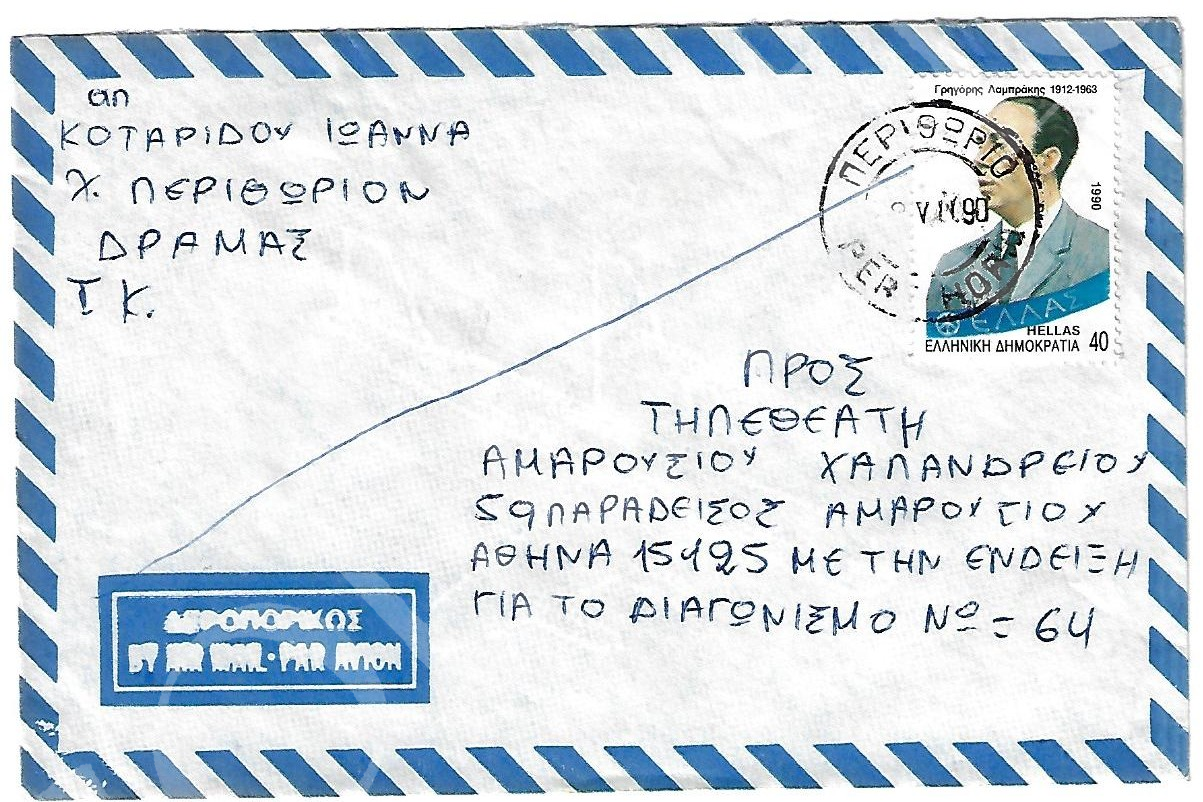 απ
ΚΟΤΑΡΙΔΟΥ ΙΩΑΝΝΑ
Χ. ΠΕΡΙΘΩΡΙΟΝ
ΔΡΑΜΑΣ
Τ.Κ.
Γρηγόρης Λαμπράκης 1912-1963
1990
ΠΕΡΙΘΩΡΙΟ
90
ΕΛΛΑΣ
HELLAS
ΕΛΛΗΝΙΚΗ ΔΗΜΟΚΡΑΤΙΑ 40
ΠΡΟΣ
ΤΗΛΕΘΕΑΤΗ
ΑΜΑΡΟΥΣΙΟΥ ΧΑΛΑΝΔΡΕΙΟΥ
59 ΠΑΡΑΔΕΙΣΟΣ ΑΜΑΡΟΥΣΙΟΥ
ΑΘΗΝΑ 15125 ΜΕ ΤΗΝ ΕΝΔΕΙΞΗ
ΓΙΑ ΤΟ ΔΙΑΓΩΝΙΣΜΟ ΝΩ = 64
ΑΕΡΟΠΟΡΙΚΩΣ
BY AIR MAIL · PAR AVION